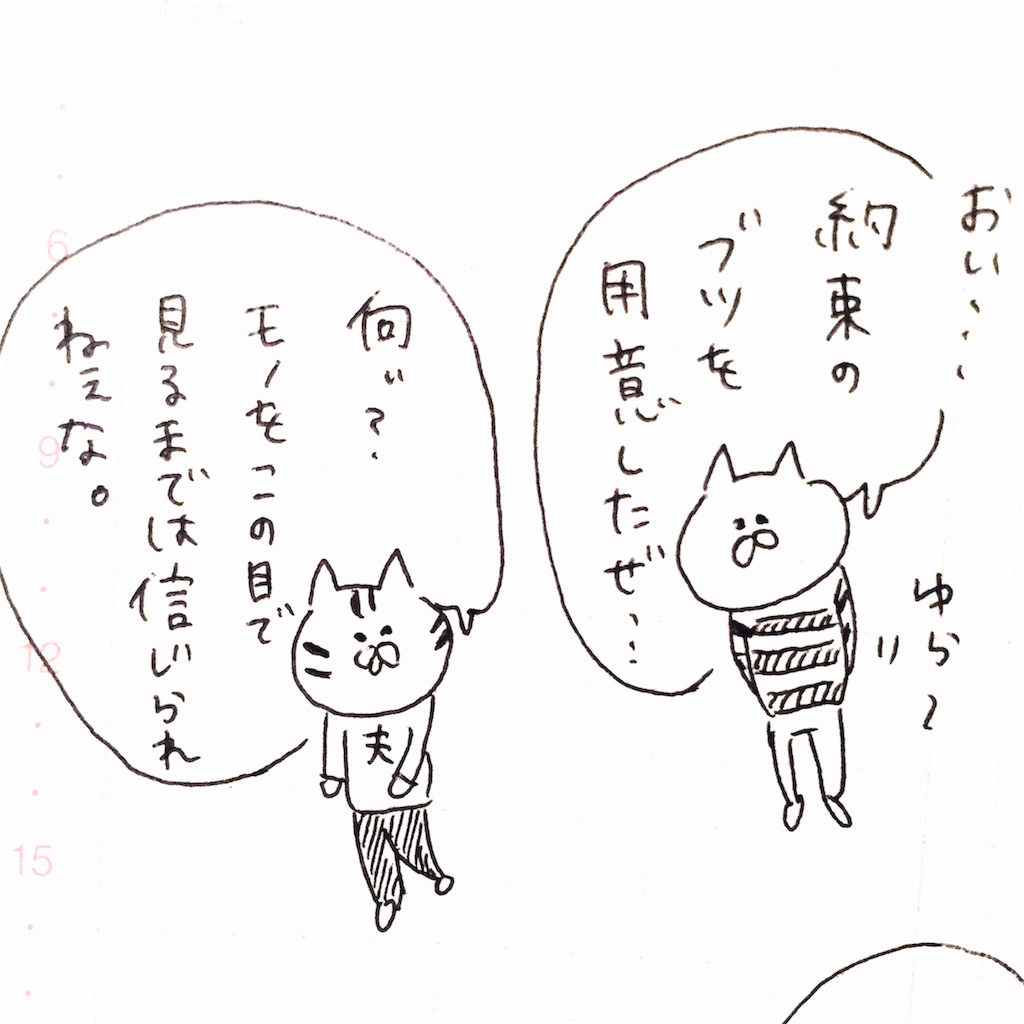 おい・・・
約束の
ブツを
用意したぜ・・・
ゆら〜
何ぃ？
モノをこの目で
見るまでは信じられ
ねぇな。
夫
6
9
12
15